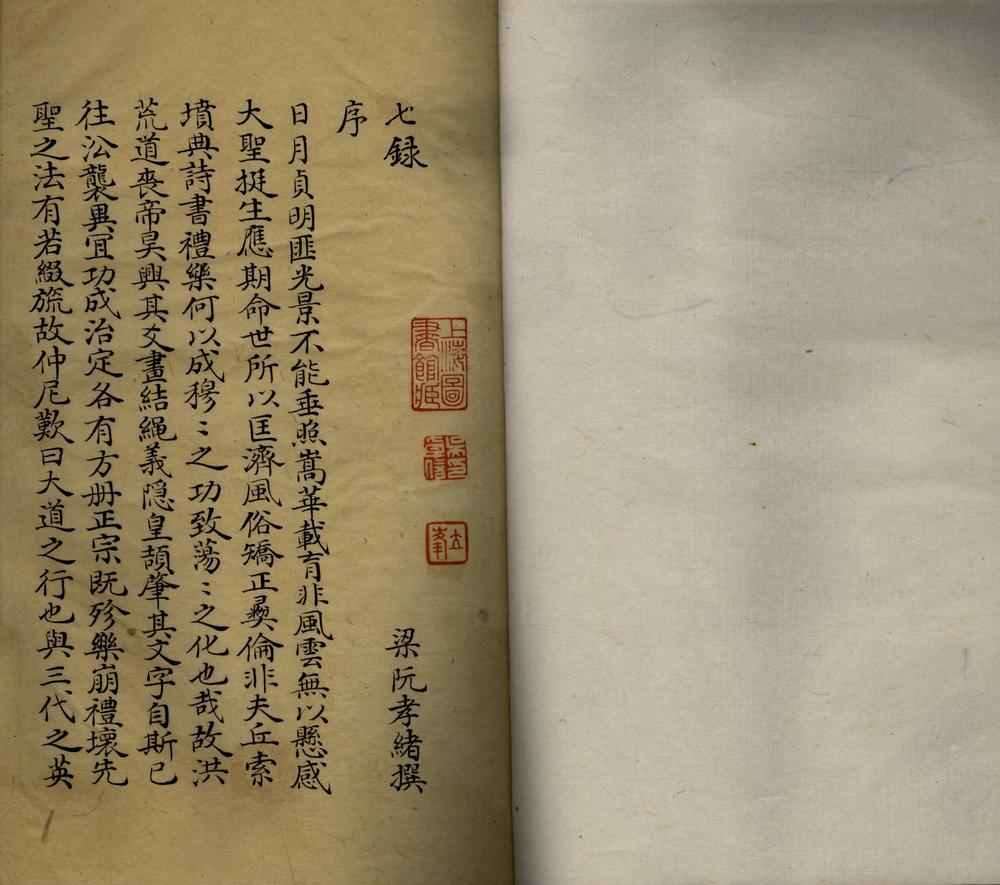 七録
梁阮孝緒撰
上海圖書館藏
序
日月貞明匪光景不能垂照嵩華載育非風雲無以懸感
大聖挺生應期命世所以匡濟風俗矯正彞倫非夫丘索
墳典詩書禮樂何以成穆〻之功致蕩〻之化也哉故洪
荒道喪帝昊興其爻畫結繩義隠皇頡肇其文字自斯已
往沿襲異冝功成治定各有方册正宗既殄樂崩禮壞先
聖之法有若綴旒故仲尼歎曰大道之行也與三代之英